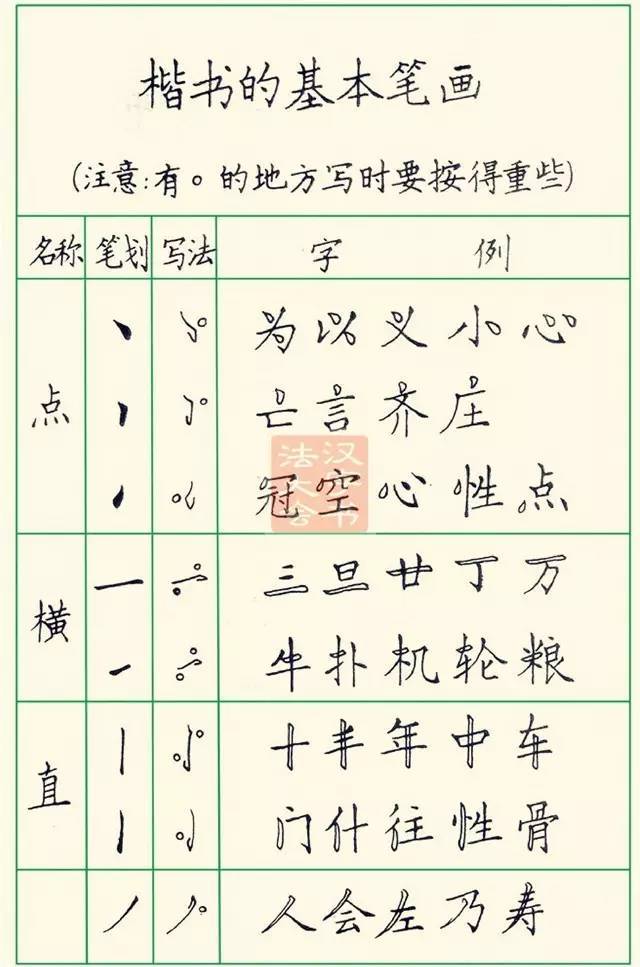 楷书的基本笔画
(注意:有。的地方写时要按得重些)
名称 笔划 写法 字 例
点
为以义小心
亡言齐庄
冠空心性点
汉字书法大会
横
三旦廿丁万
牛扑机轮粮
直
十半年中车
门什往性骨
人会左乃寿